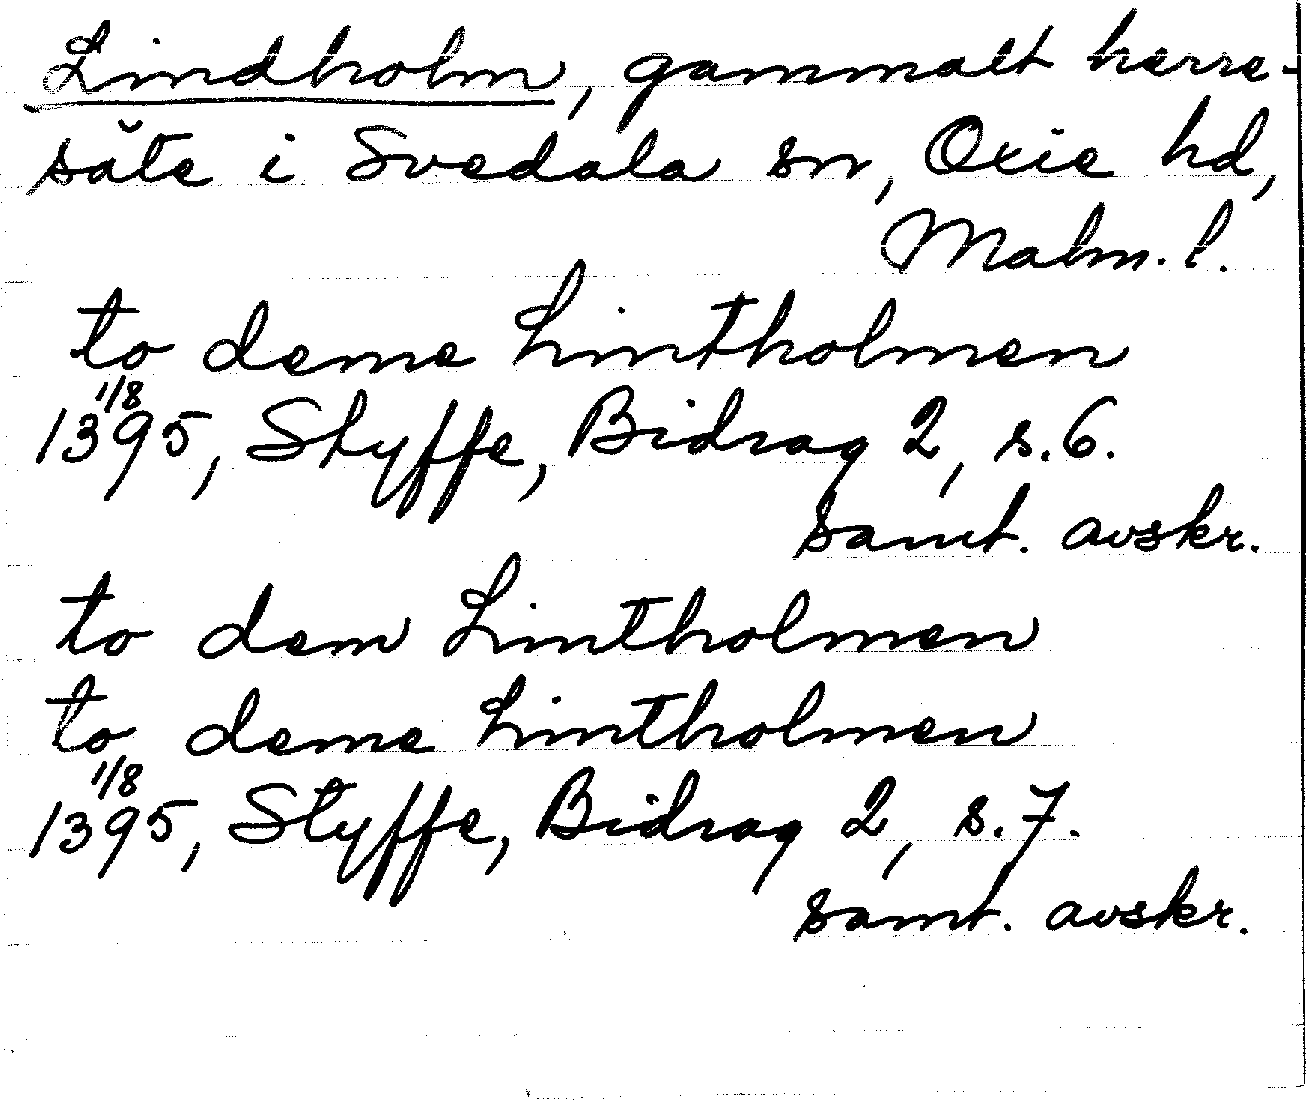 Lindholm, gammalt herre-
säte i Svedala sn, Oxie hd,
Malm. l.
to deme Lintholmen
1/8
1395, Styffe, Bidrag 2, s. 6.
samt. avskr.
to dem Lintholmen
to deme Lintholmen
1/8
1395, Styffe, Bidrag 2, s. 7.
samt. avskr.